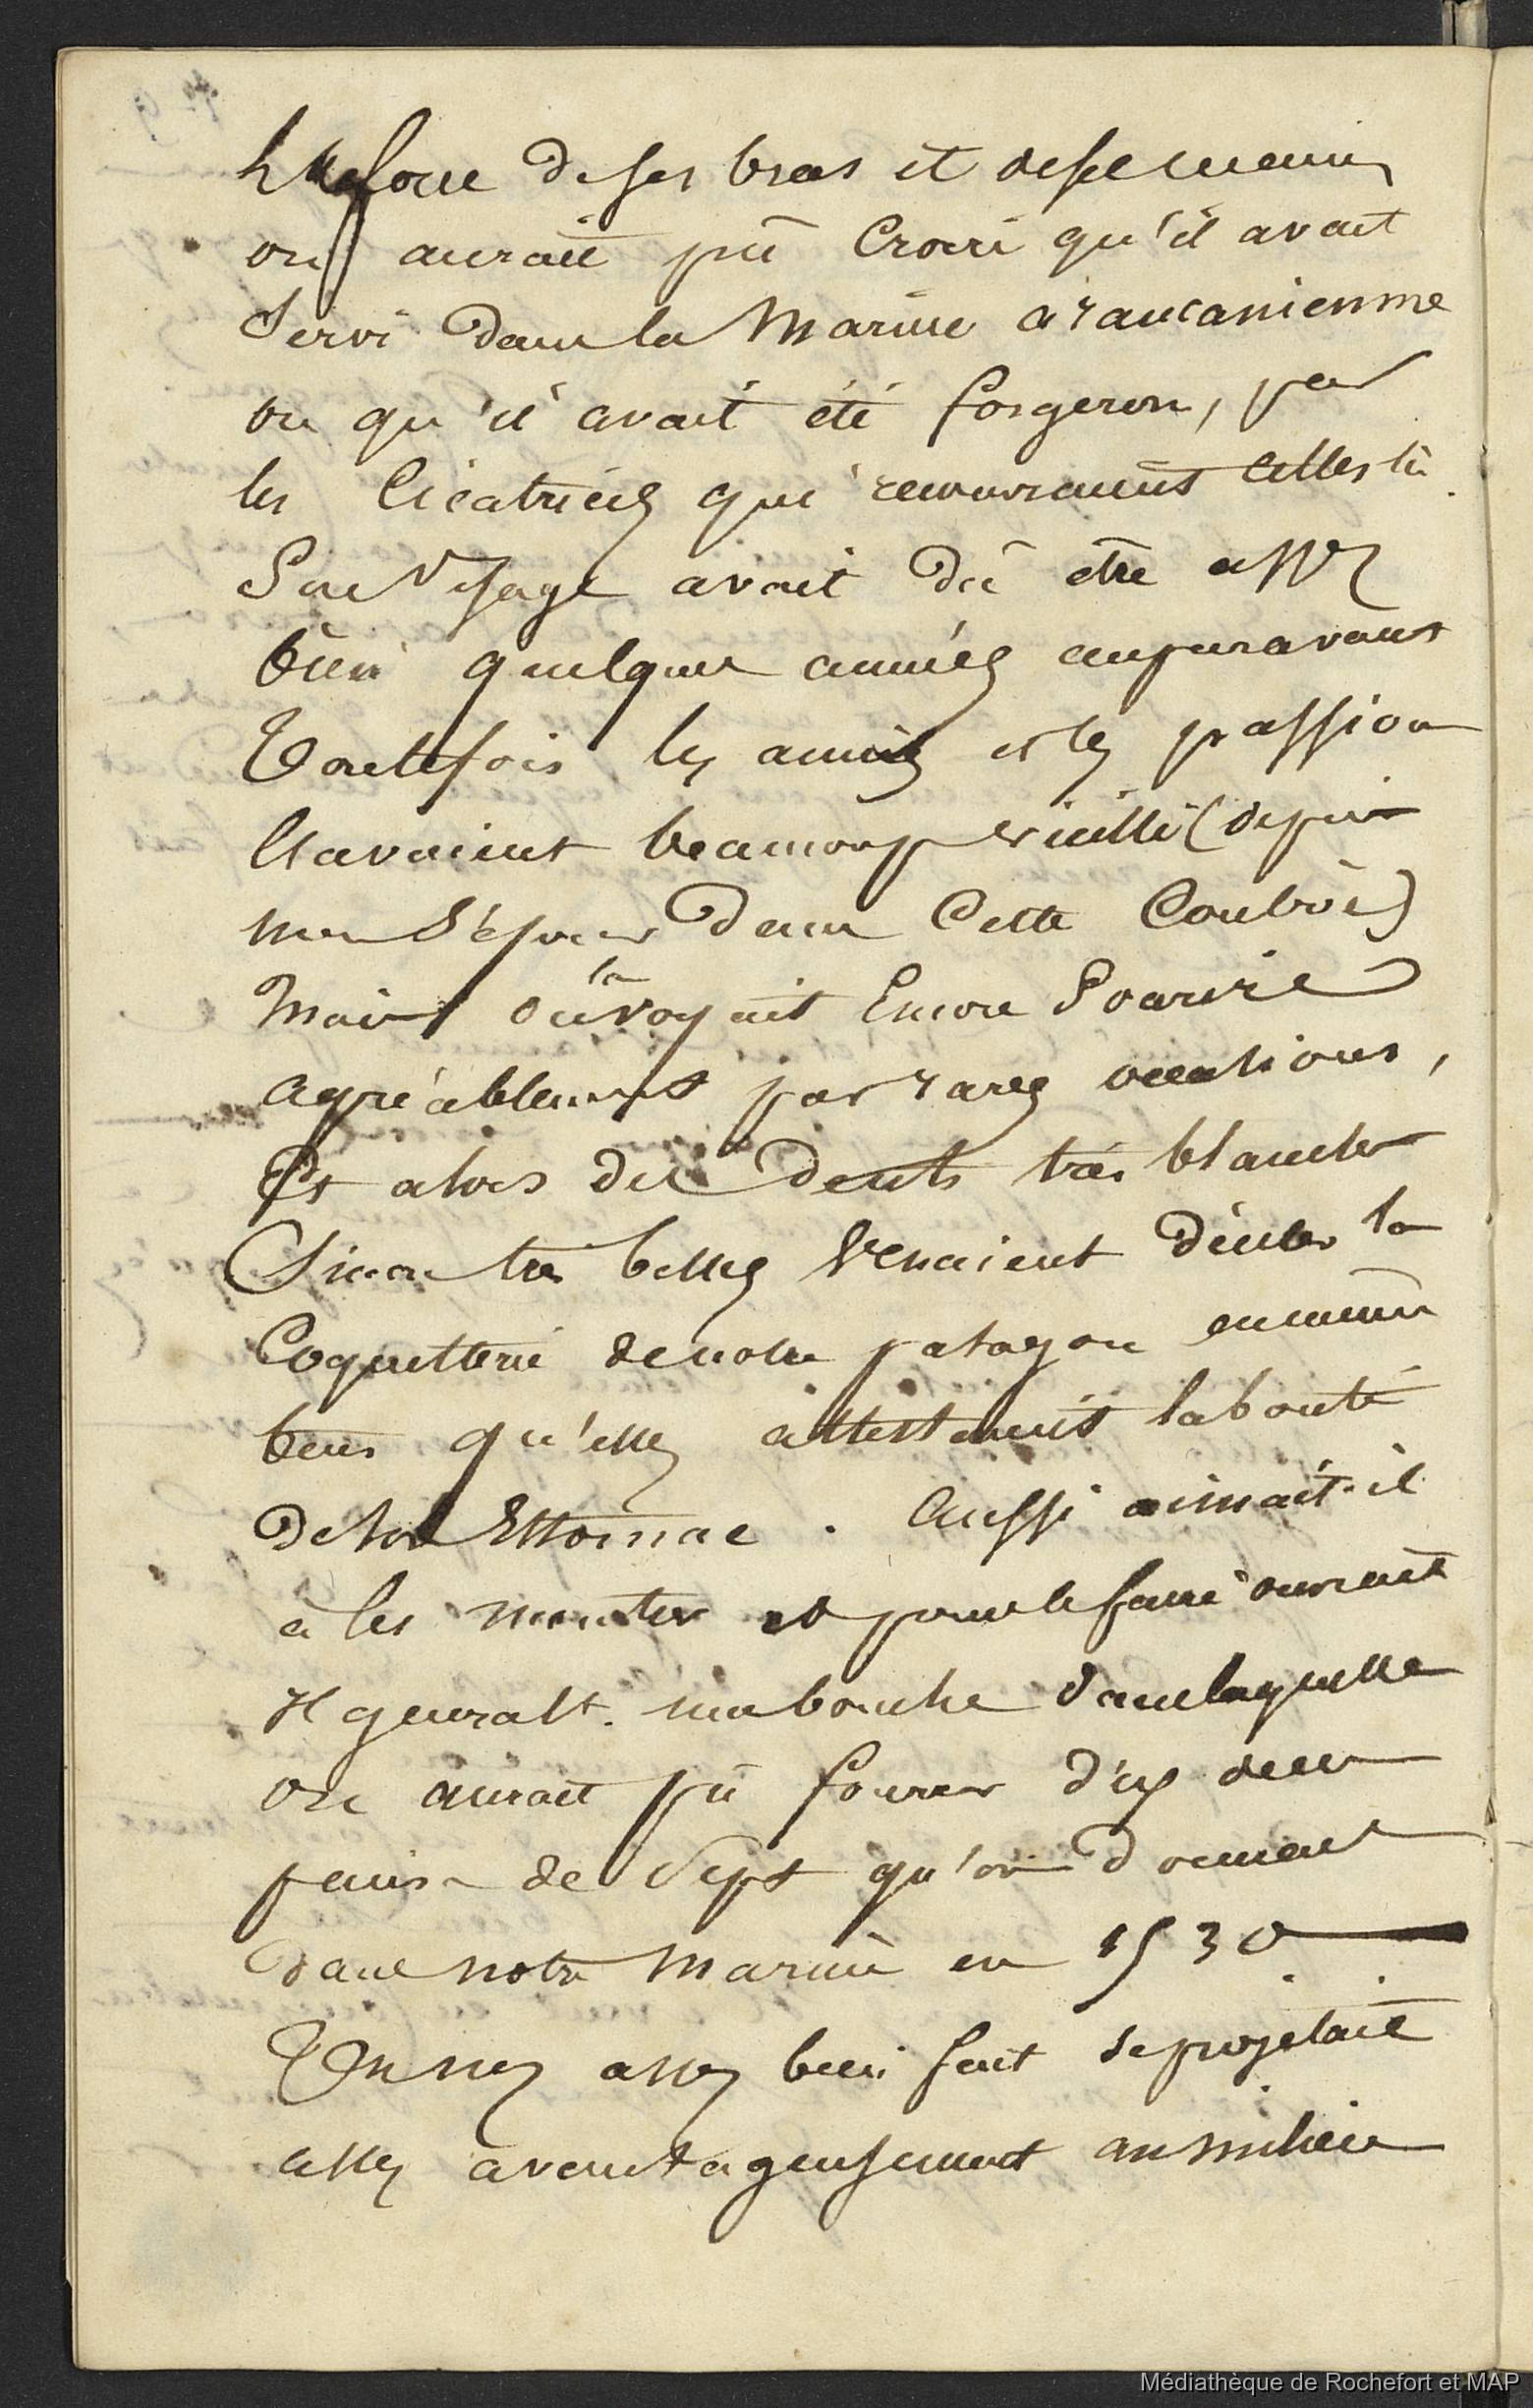 la force de ses bras et de ses mains
on aurait pû croire qu'il avait
servi dans la marine araucanienne
ou qu'il avait été forgeron, par
les cicatrices qui recouvraient celles là.
Son visage avait dû être assez
bien quelques années auparavant
Toutefois les années et les passions
l'avaient beaucoup vieilli (depuis
mon séjour dans cette contrée)
Mais on la voyait encore sourire
agréablement par rares occasions,
Et alors des dents très blanches
sinon très belles venaient déceler la
coquetterie de notre patagon en même
tems qu'elles attestaient la bonté
de son Estomac. Aussi aimait-il
à les montrer et pour le faire ouvrait
Il gueralt. sa bouche dans laquelle
on aurait pû fourrer dix des
pains de sept qu'on donnait
dans notre marine en 1530
Un nez assez bien fait se projetait
assez avantageusement au milieu
Médiathèque de Rochefort et MAP